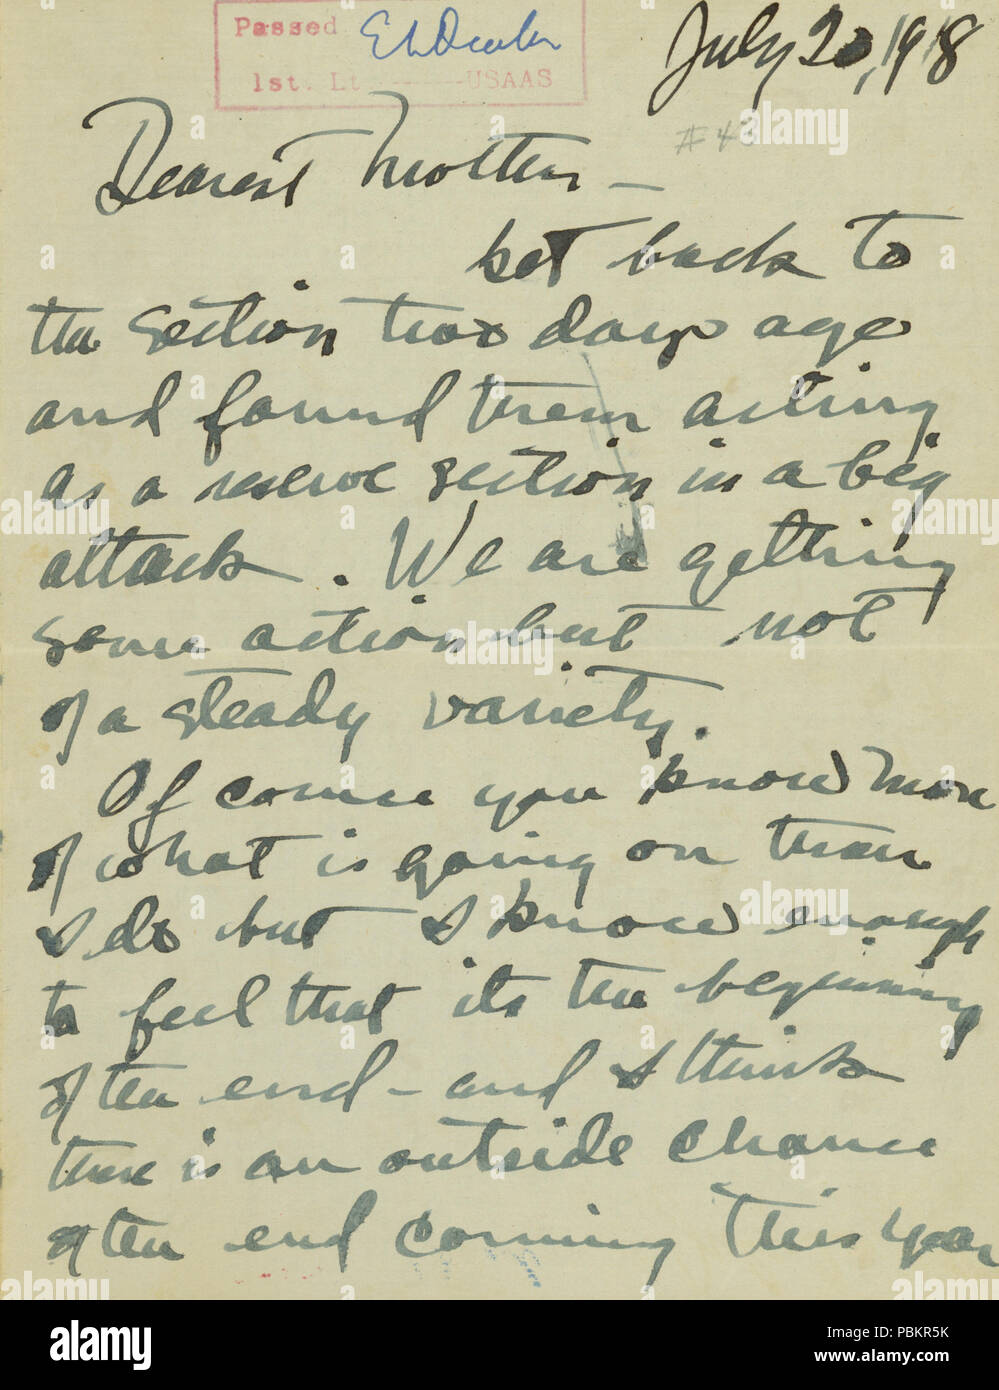 Passed
1st. Lt ------ USAAS
July 20, 1918
Dearest Mother –
Got back to
the section two days ago
and found them acting
as a reserve section in a big
attack. We are getting
some action but not
of a steady variety.
Of course you know more
of what is going on than
I do but I know enough
to feel that its the beginning
of the end – and I think
there is an outside chance
of the end coming this year
alamy
Image ID: PBKR5K
www.alamy.com